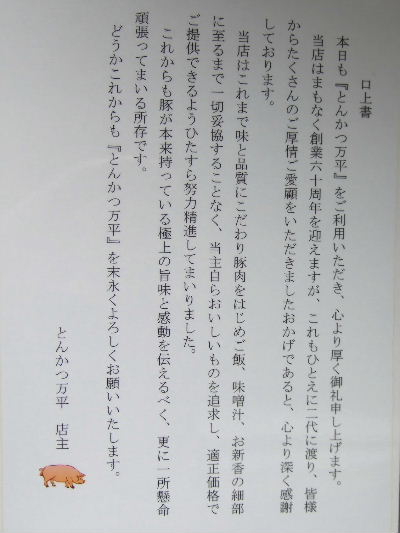 口上書
本日も『とんかつ万平』をご利用いただき、心より厚く御礼申し上げます。
当店はまもなく創業六十周年を迎えますが、これもひとえに二代に渡り、皆様
からたくさんのご厚情ご愛顧をいただきましたおかげであると、心より深く感謝
しております。
当店はこれまで味と品質にこだわり豚肉をはじめご飯、味噌汁、お新香の細部
に至るまで一切妥協することなく、当主自らおいしいものを追求し、適正価格で
ご提供できるようひたすら努力精進してまいりました。
これからも豚が本来持っている極上の旨味と感動を伝えるべく、更に一所懸命
頑張ってまいる所存です。
どうかこれからも『とんかつ万平』を末永くよろしくお願いいたします。
とんかつ万平 店主